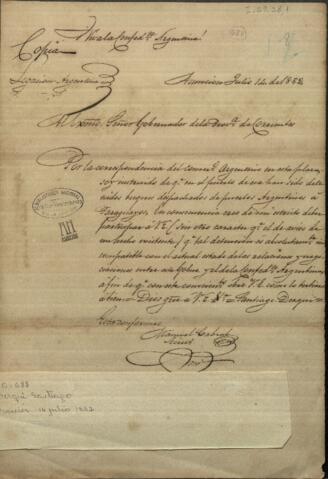 ¡Viva la Confedn. Argentina!
Copia
Legacion Argentina
Asuncion Julio 14 de 1852
Al Exmo. Señor Gobernador de la Prova. de Corrientes
Por la correspondencia del comercio Argentino en esta plaza
soy enterado de qe. en el puerto de esa han sido dete
nidos buques despachados de puertos Argentinos a
Paraguayos. En consecuencia creo de mi deber
participar a V.E. (sin otro caracter qe. el de aviso de
un hecho existente) qe. tal detencion es absolutamte. in
compatible con el actual estado de las relaciones y nego
ciaciones entre este Gobno. y el de la Confedn. Argentina
a fin de qe. con este conocimto. obre V.E. como lo
Dios gue. a V.E. Santiago Derqui
Es conforme
Manuel Cabral
Santiago
14 julio 1852